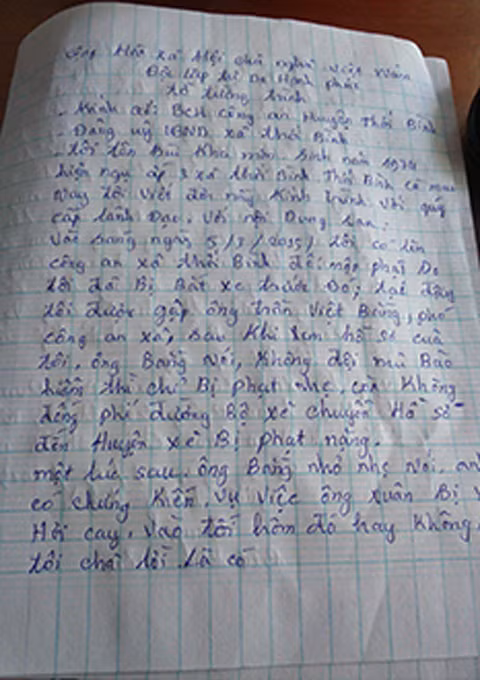 Cộng Hòa xã Hội chủ nghĩa Việt Nam
Độc lập tự Do Hạnh phúc
tờ tường trình
- Kính gởi: BCH công an Huyện Thới Bình
- Đảng uỷ UBND xã thới Bình
- tôi tên Bùi Kha min. Sinh năm 1974
hiện ngụ ấp 3 xã thới Bình Thới Bình cà mau
Nay tôi viết đơn này Kính trình với quý
cấp lãnh Đạo. với nội Dung sau:
vào sáng ngày 5/3/2015, tôi có lên
công an xã thới Bình để nộp phạt Do
tôi đã Bị Bắt xe trước Đó, tại đây
tôi được gặp ông trần việt Bằng, phó
công an xã, sau Khi xem hồ sơ của
tôi, ông Bằng nói, Không đội mũ Bảo
hiểm thì chỉ Bị phạt nhẹ, còn Không
đóng phí đường Bộ xẽ chuyển Hồ sơ
đến Huyện xẽ Bị phạt nặng.
một lúc sau. ông Bằng nhỏ nhẹ nói. an
có chứng Kiến. vụ việc ông xuân Bị
Hơi cay. vào tối hôm đó hay Không.
tôi chả lời. Là có